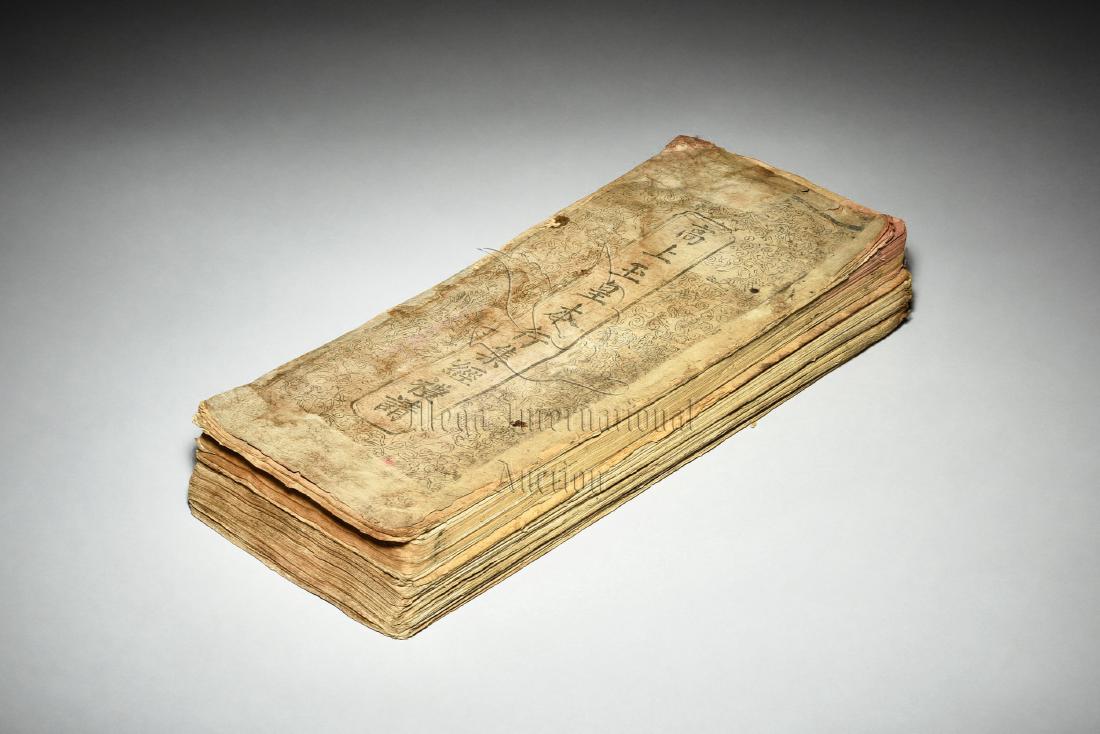 高上玉皇本行集經禮誦
Mega International
Auction